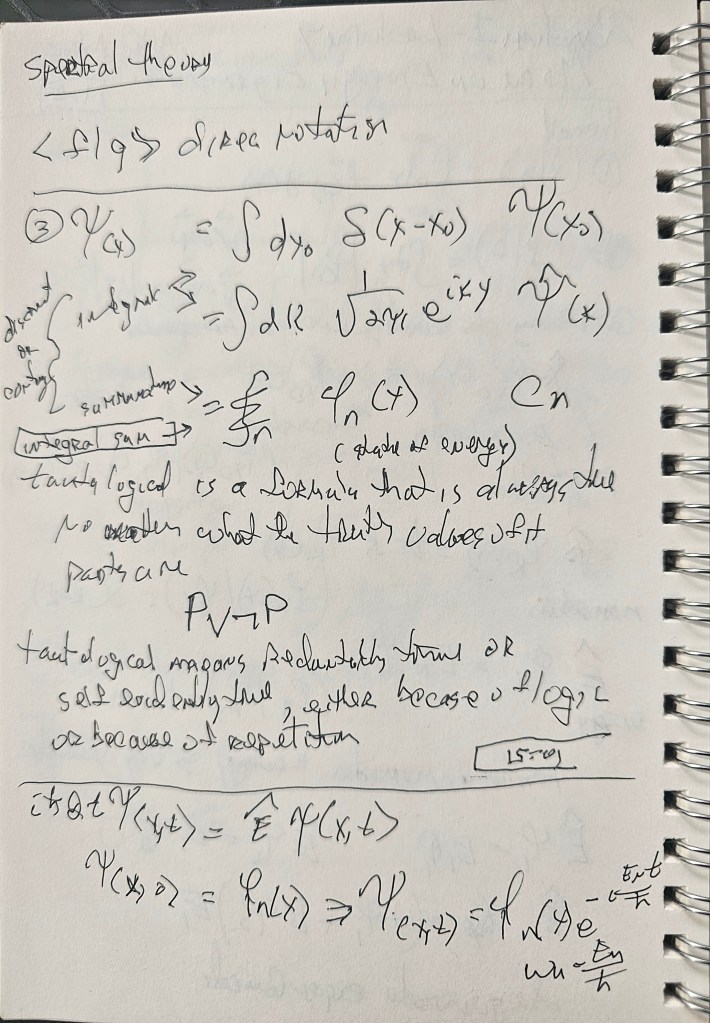 spectral theory
<f|g> dirac notation
③ Ψ(x) = ∫dx₀ δ(x-x₀) Ψ(x₀)
integral = ∫dk 1/√2π e^{ikx} Ψ̂(k)
or
summation = n φn(x) Cn
integral sum → (state of energy)
tautological is a formula that is always true
no matter what the truth values of it
parts are
P∨¬P
tautological means true OR
self evidently true, either becase of logic
or because of repetition
15:01
iħ∂t Ψ(x,t) = Ê Ψ(x,t)
Ψ(x,0) = φn(x) ⇒ Ψ(x,t) = φn(x) e^{-iEnt/ħ}
ωn = En/ħ